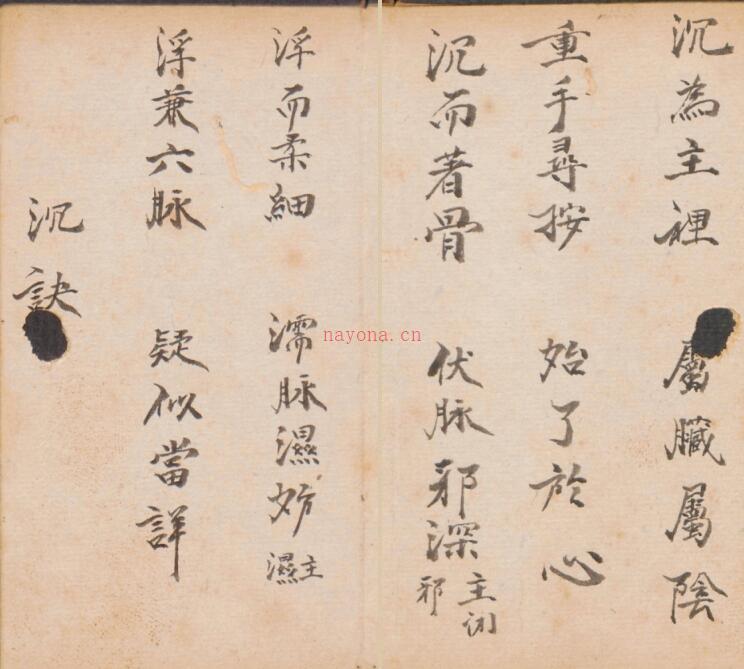 沉為主裡　屬臟屬陰
重手尋按　始了於心
沉而著骨　伏脉邪深　主邪
浮而柔細　濡脉濕妨　主濕
浮兼六脉　疑似當詳
沉訣
nayona.cn